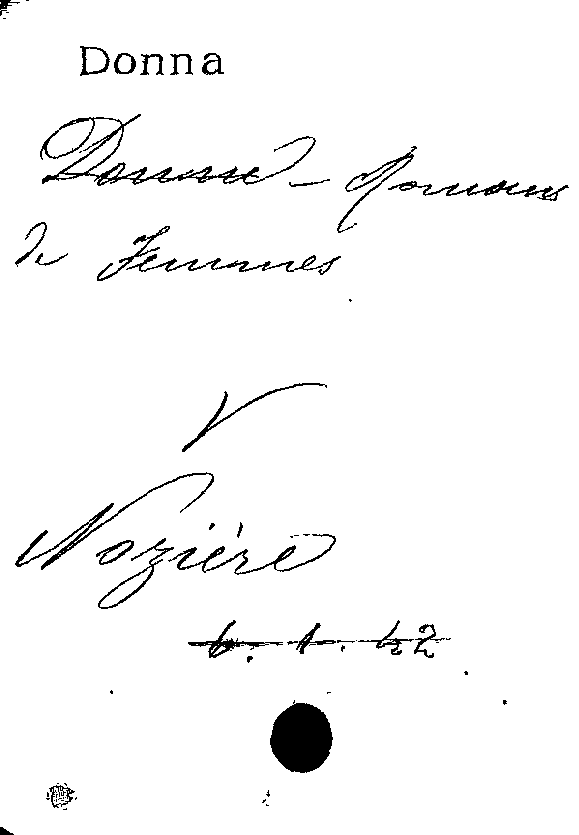 Donna
Donna - Romans
de Femmes
V
Nozière
6. 1. 42